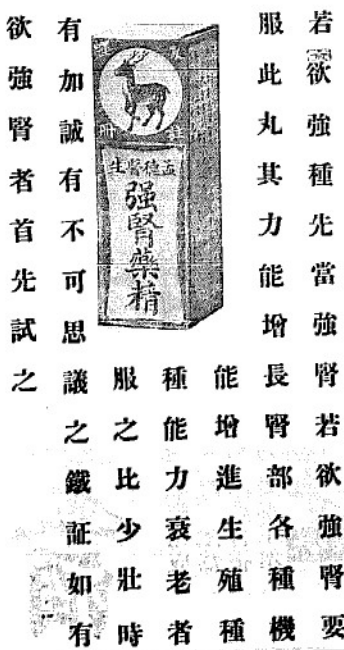 若欲強種先當強腎若欲強腎要
服此丸其力能增長腎部各種機
能增進生殖種
種能力衰老者
服之比少壯時
有加誠有不可思議之鐵証如有
欲強腎者首先試之
孟德醫生
强腎藥精